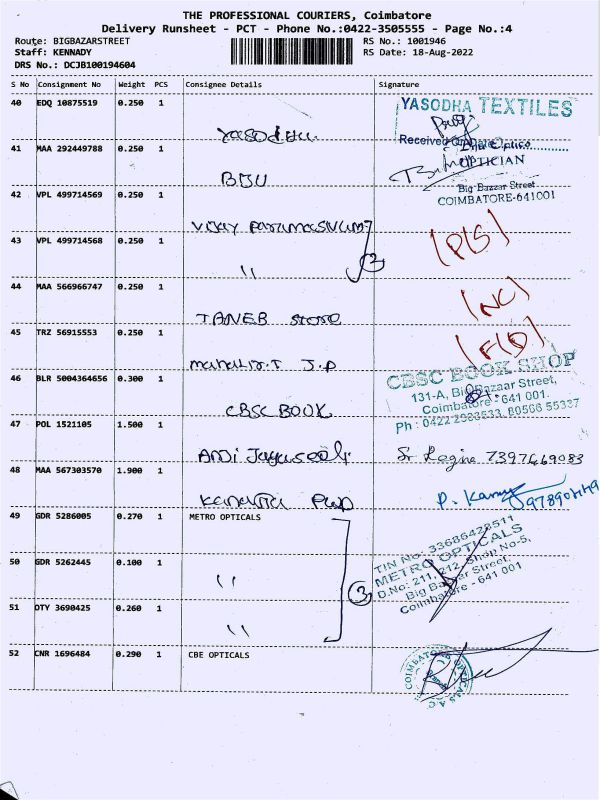 THE PROFESSIONAL COURIERS, Coimbatore
Delivery Runsheet - PCT - Phone No.:0422-3505555 - Page No.:4
Route: BIGBAZARSTREET RS No.: 1001946
Staff: KENNADY RS Date: 18-Aug-2022
DRS No.: DCJB100194604
S No Consignment No Weight PCS Consignee Details Signature
40 EDQ 10875519 0.250 1
YASODHA TEXTILES
Received
41 MAA 292449788 0.250 1
OPTICIAN
BIJU
Big Bazzar Street
COIMBATORE-641001
42 VPL 499714569 0.250 1
43 VPL 499714568 0.250 1
" 2
44 MAA 566966747 0.250 1
(NC)
TANEB store
45 TRZ 56915553 0.250 1
J.P
46 BLR 5004364656 0.300 1
CBSC BOOK SHOP
131-A, Big Bazaar Street,
Coimbatore - 641 001.
CBSC BOOK
47 POL 1521105 1.500 1
Ph : 0422 80566 55337
ANDI
48 MAA 567303570 1.900 1
P. 
49 GDR 5286005 0.270 1 METRO OPTICALS
TIN No. 33686428511
METRO OPTICALS
50 GDR 5262445 0.100 1
D.No: 211, 212, Shop No-5,
" 3
Big Bazaar Street,
Coimbatore - 641 001
51 DTY 3690425 0.260 1
"
52 CNR 1696484 0.290 1 CBE OPTICALS